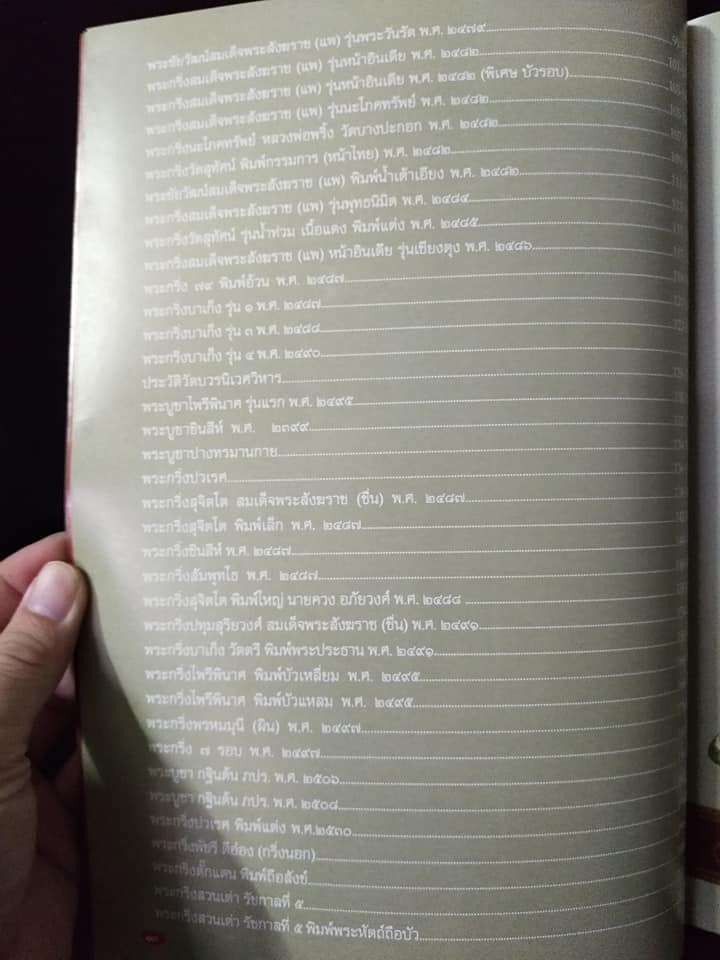 พระชัยวัฒน์สมเด็จพระสังฆราช (แพ) รุ่นพระวันรัต พ.ศ. ๒๔๗๙
พระกริ่งสมเด็จพระสังฆราช (แพ) รุ่นหน้าอินเดีย พ.ศ. ๒๔๘๒
พระกริ่งสมเด็จพระสังฆราช (แพ) รุ่นหน้าอินเดีย พ.ศ. ๒๔๘๒ (พิเศษ บัวรอบ)
พระกริ่งสมเด็จพระสังฆราช (แพ) รุ่นนะโภคทรัพย์ พ.ศ. ๒๔๘๒
พระกริ่งนะโภคทรัพย์ หลวงพ่อพริ้ง วัดบางปะกอก พ.ศ. ๒๔๘๒
พระกริ่งวัดสุทัศน์ พิมพ์กรรมการ (หน้าไทย) พ.ศ. ๒๔๘๒
พระชัยวัฒน์สมเด็จพระสังฆราช (แพ) พิมพ์น้ำเต้าเอียง พ.ศ. ๒๔๘๒
พระกริ่งสมเด็จพระสังฆราช (แพ) รุ่นพุทธนิมิต พ.ศ. ๒๔๘๔
พระกริ่งวัดสุทัศน์ รุ่นน้ำท่วม เนื้อแดง พิมพ์แต่ง พ.ศ. ๒๔๘๕
พระกริ่งสมเด็จพระสังฆราช (แพ) หน้าอินเดีย รุ่นเชียงตุง พ.ศ. ๒๔๘๖
พระกริ่ง ๗๙ พิมพ์อ้วน พ.ศ. ๒๔๘๗
พระกริ่งบาเก็ง รุ่น ๑ พ.ศ. ๒๔๘๗
พระกริ่งบาเก็ง รุ่น ๓ พ.ศ. ๒๔๘๘
พระกริ่งบาเก็ง รุ่น ๔ พ.ศ. ๒๔๙๐
ประวัติวัดบวรนิเวศวิหาร
พระบูชาไพรีพินาศ รุ่นแรก พ.ศ. ๒๔๙๕
พระบูชาชินสีห์ พ.ศ. ๒๓๙๙
พระบูชาปางทรมานกาย
พระกริ่งปวเรศ
พระกริ่งสุจิตโต สมเด็จพระสังฆราช (ชื่น) พ.ศ. ๒๔๘๗
พระกริ่งสุจิตโต พิมพ์เล็ก พ.ศ. ๒๔๘๗
พระกริ่งชินสีห์ พ.ศ. ๒๔๘๗
พระกริ่งสัมพุทไธ พ.ศ. ๒๔๘๗
พระกริ่งสุจิตโต พิมพ์ใหญ่ นายควง อภัยวงศ์ พ.ศ. ๒๔๘๘
พระกริ่งปทุมสุริยวงศ์ สมเด็จพระสังฆราช (ชื่น) พ.ศ. ๒๔๙๑
พระกริ่งบาเก็ง วัดตรี พิมพ์พระประธาน พ.ศ. ๒๔๙๑
พระกริ่งไพรีพินาศ พิมพ์บัวเหลี่ยม พ.ศ. ๒๔๙๕
พระกริ่งไพรีพินาศ พิมพ์บัวแหลม พ.ศ. ๒๔๙๕
พระกริ่งพรหมมุนี (ผิน) พ.ศ. ๒๔๙๗
พระกริ่ง ๗ รอบ พ.ศ. ๒๔๙๗
พระบูชา กฐินต้น ภปร. พ.ศ. ๒๕๐๖
พระบูชา กฐินต้น ภปร. พ.ศ. ๒๕๐๘
พระกริ่งปวเรศ พิมพ์แต่ง พ.ศ.๒๕๓๐
พระกริ่งพัชรี ตีฮ่อง (กริ่งนอก)
พระกริ่งตั๊กแตน พิมพ์ถือสังข์
พระกริ่งสวนเต่า รัชกาลที่ ๕
พระกริ่งสวนเต่า รัชกาลที่ ๕ พิมพ์พระหัตถ์ถือบัว